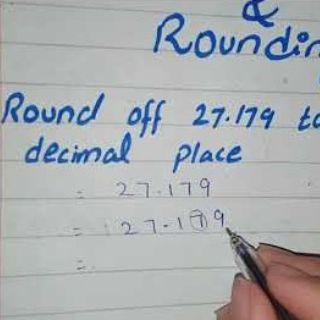 &
Roundin
Round off 27.179 to
decimal place
= 27.179
= 27.179
=